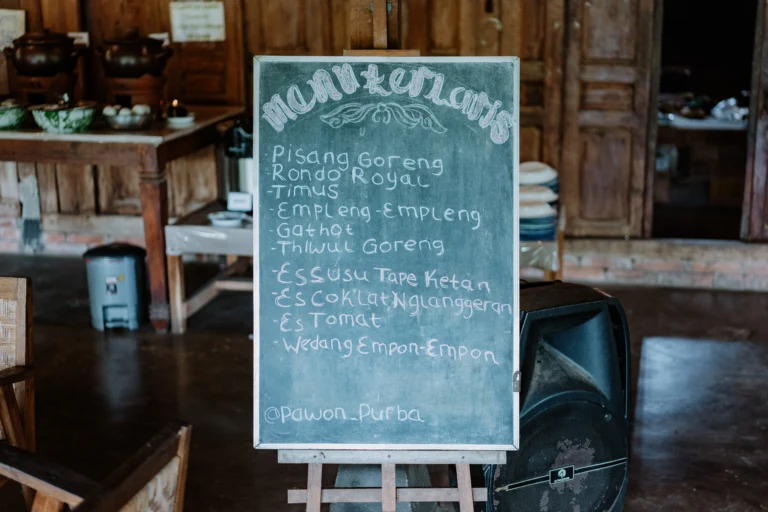 menu terlaris
- Pisang Goreng
- Rondo Royal
- Timus
- Empleng-Empleng
- Gathot
- Thiwul Goreng
- Es Susu Tape Ketan
- Es Coklat Nglanggeran
- Es Tomat
- Wedang Empon-Empon
@Pawon_Purba